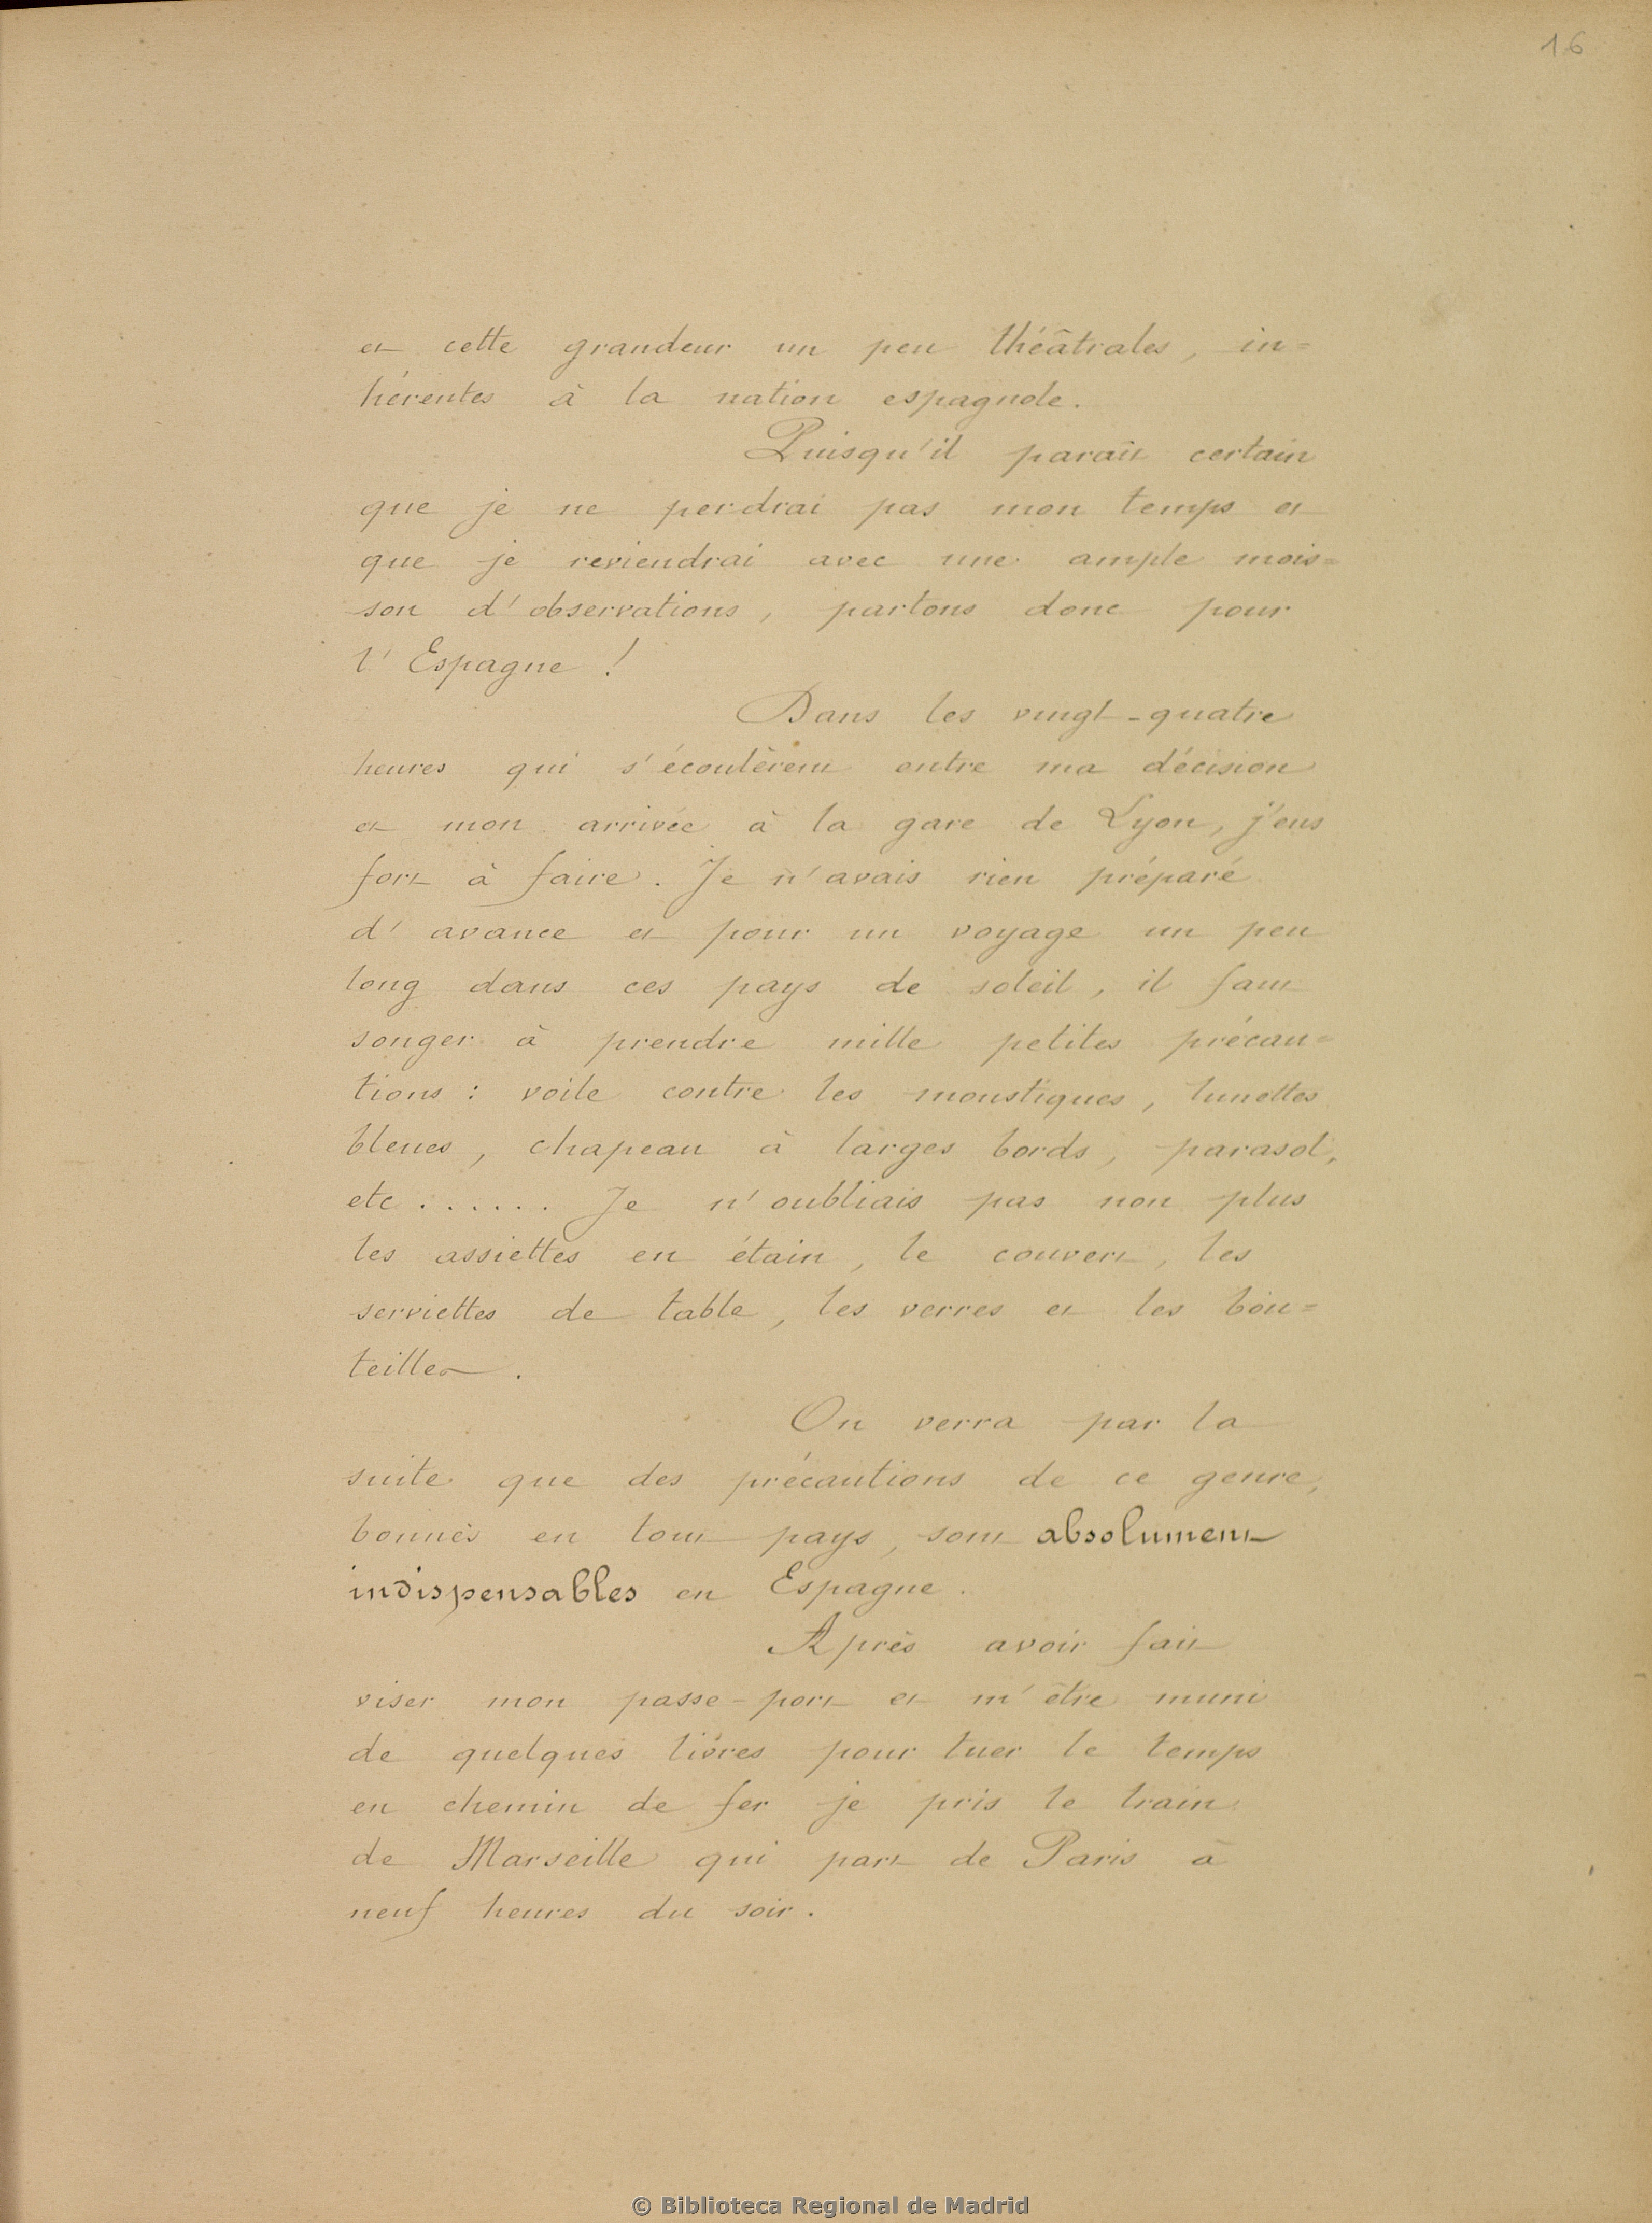 16
et cette grandeur un peu théâtrales, in=
hérentes à la nation espagnole.
Puisqu'il paraît certain
que je ne perdrai pas mon temps et
que je reviendrai avec une ample mois=
son d'observations, partons donc pour
l'Espagne !
Dans les vingt-quatre
heures qui s'écoulèrent entre ma décision
et mon arrivée à la gare de Lyon, j'eus
fort à faire. Je n'avais rien préparé
d'avance et pour un voyage un peu
long dans ces pays de soleil, il faut
songer à prendre mille petites précau=
tions : voile contre les moustiques, lunettes
bleues, chapeau à larges bords, parasol,
etc ...... Je n'oubliais pas non plus
les assiettes en étain, le couvert, les
serviettes de table, les verres et les bou=
teilles.
On verra par la
suite que des précautions de ce genre,
bonnes en tout pays, sont absolument
indispensables en Espagne.
Après avoir fait
viser mon passe-port et m'être muni
de quelques livres pour tuer le temps
en chemin de fer je pris le train
de Marseille qui part de Paris à
neuf heures du soir.
© Biblioteca Regional de Madrid